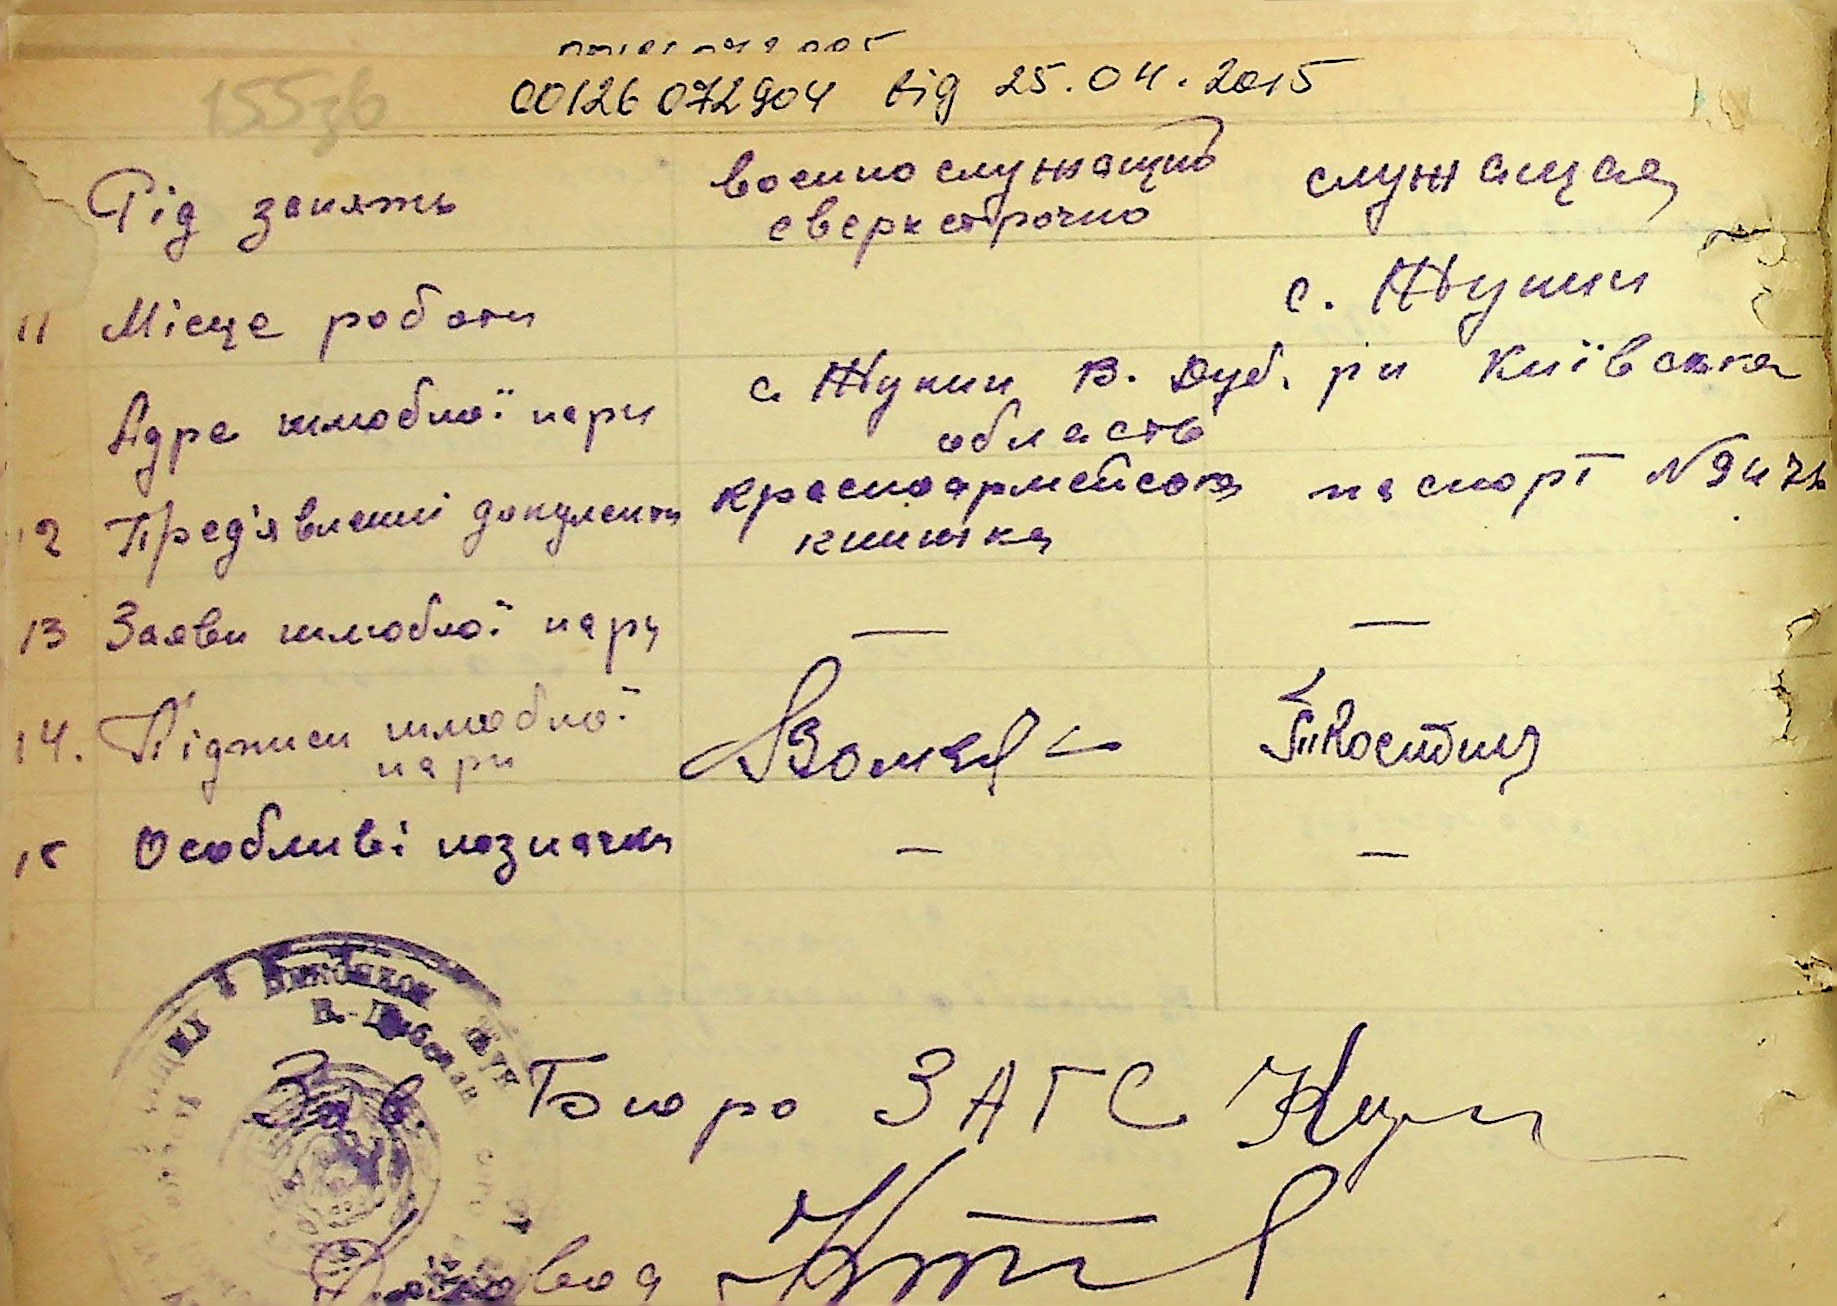 155зв
00126072904 від 25.04.2015
Рід занять
военнослужащий сверхсрочно
служащая
11 Місце роботи
с. Жукин
Адре шлюбної пари
с. Жукин В. Дуб. р-н Київська область
12 Пред'явленні документи
красноармейская книжка
паспорт №
13 Заяви шлюбної пари — —
14. Підписи шлюбної пари
15 Особливі позначки — —
Виконком Жук
В.-Дубечан
Зав. Бюро ЗАГС